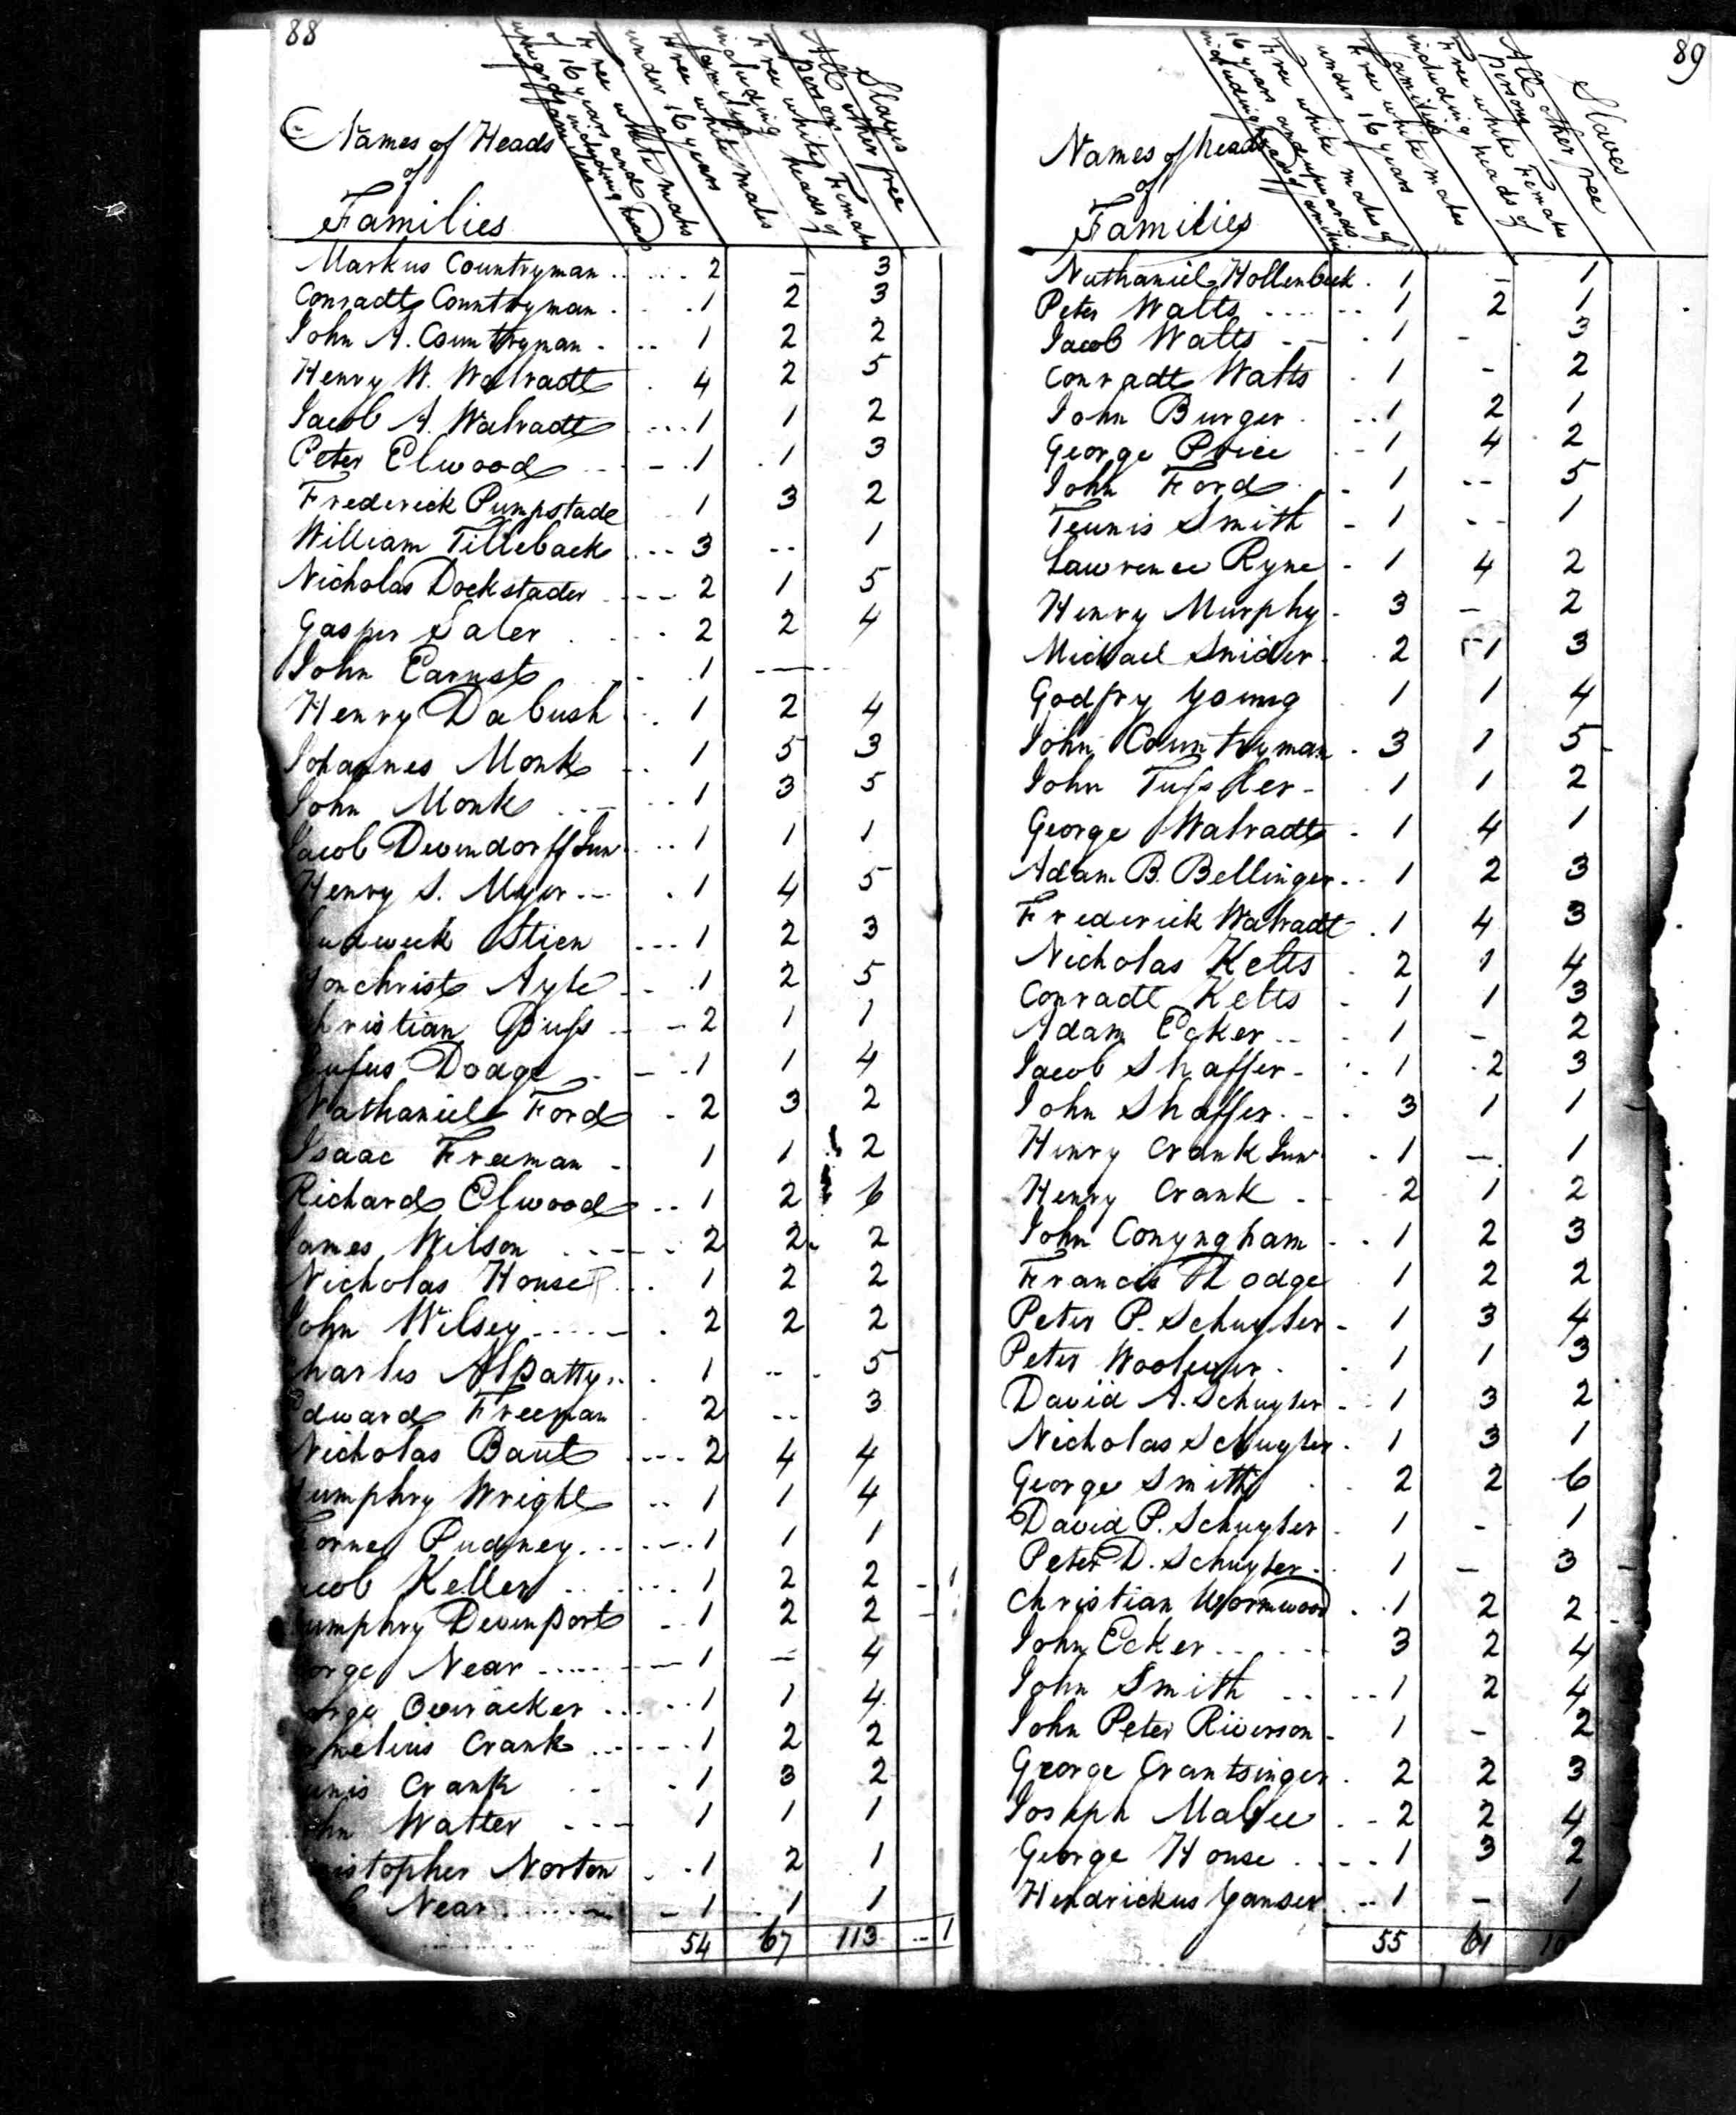 88
Names of Heads
of
Families
Free white males
of 16 years and
upwards including heads
of families
Free white males
under 16 years
Free white Females
including heads of
families
All other free
persons
Slaves
Markus Countryman 2 - 3
Conradt Countryman 1 2 3
John A. Countryman 1 2 2
Henry W. Walradt 4 2 5
Jacob A. Walradt 1 1 2
Peter Elwood 1 1 3
Frederick Pumpstade 1 3 2
William Tilleback 3 -- 1
Nicholas Dockstader 2 1 5
Gasper Saler 2 2 4
John Earnst 1 -
Henry Dabush 1 2 4
Johannes Monk 1 5 3
John Monk 1 3 5
Jacob Devendorff Jun 1 1 1
Henry S. Myer 1 4 5
udweek Stien 1 2 3
onchrist Ayle 1 2 5
hristian Buss 2 1 1
ufus Dodge 1 1 4
Nathaniel Ford 2 3 2
Isaac Freeman 1 1 2
Richard Elwood 1 2 6
James Wilson 2 2 2
Nicholas House 1 2 2
John Wilsey 2 2 2
harles Alpatty 1 -- 5
Edward Freeman 2 -- 3
Nicholas Baut 2 4 4
umphry Wright 1 1 4
orne Pudney 1 1 1
acob Keller 1 2 2 - 1
umphry Devenport 1 2 2 -
orge Near 1 - 4
orge Overacker 1 1 4
rnelius Crank 1 2 2
unis Crank 1 3 2
hn Walter 1 1 1
ristopher Norton 1 2 1
Near 1 1 1
54 67 113 - 1
89
Names of heads
of
Families
Free white males of
16 years and upwards
including heads of families
Free white males
under 16 years
Free white Females
including heads of
families
All other free
persons
Slaves
Nathaniel Hollenbeek 1 - 1
Peter Walts 1 2 1
Jacob Walts 1 - 3
Conradt Walts 1 - 2
John Burger 1 2 1
George Price 1 4 2
John Ford 1 -- 5
Teunis Smith 1 -- 1
Lawrence Ryne 1 4 2
Henry Murphy 3 - 2
Michael Snider 2 1 3
Godfry Young 1 1 4
John Countryman 3 1 5
John Tussler 1 1 2
George Walradt 1 4 1
Adam B. Bellinger 1 2 3
Frederick Walradt 1 4 3
Nicholas Kelts 2 1 4
Conradt Kelts 1 1 3
Adam Ecker 1 - 2
Jacob Shaffer 1 2 3
John Shaffer 3 1 1
Henry Crank Jun 1 - 1
Henry Crank 2 1 2
John Conyngham 1 2 3
Francis Dodge 1 2 2
Peter P. Schuyler 1 3 4
Peter Woolever 1 1 3
David A. Schuyler 1 3 2
Nicholas Schuyler 1 3 1
George Smith 2 2 6
David P. Schuyler 1 - 1
Peter D. Schuyler 1 - 3
Christian Wormwood 1 2 2
John Ecker 3 2 4
John Smith 1 2 4
John Peter Riverson 1 - 2
George Crantsinger 2 2 3
Joseph Mabee 2 2 4
George House 1 3 2
Hendrickus Yanser 1 - 1
55 61 10